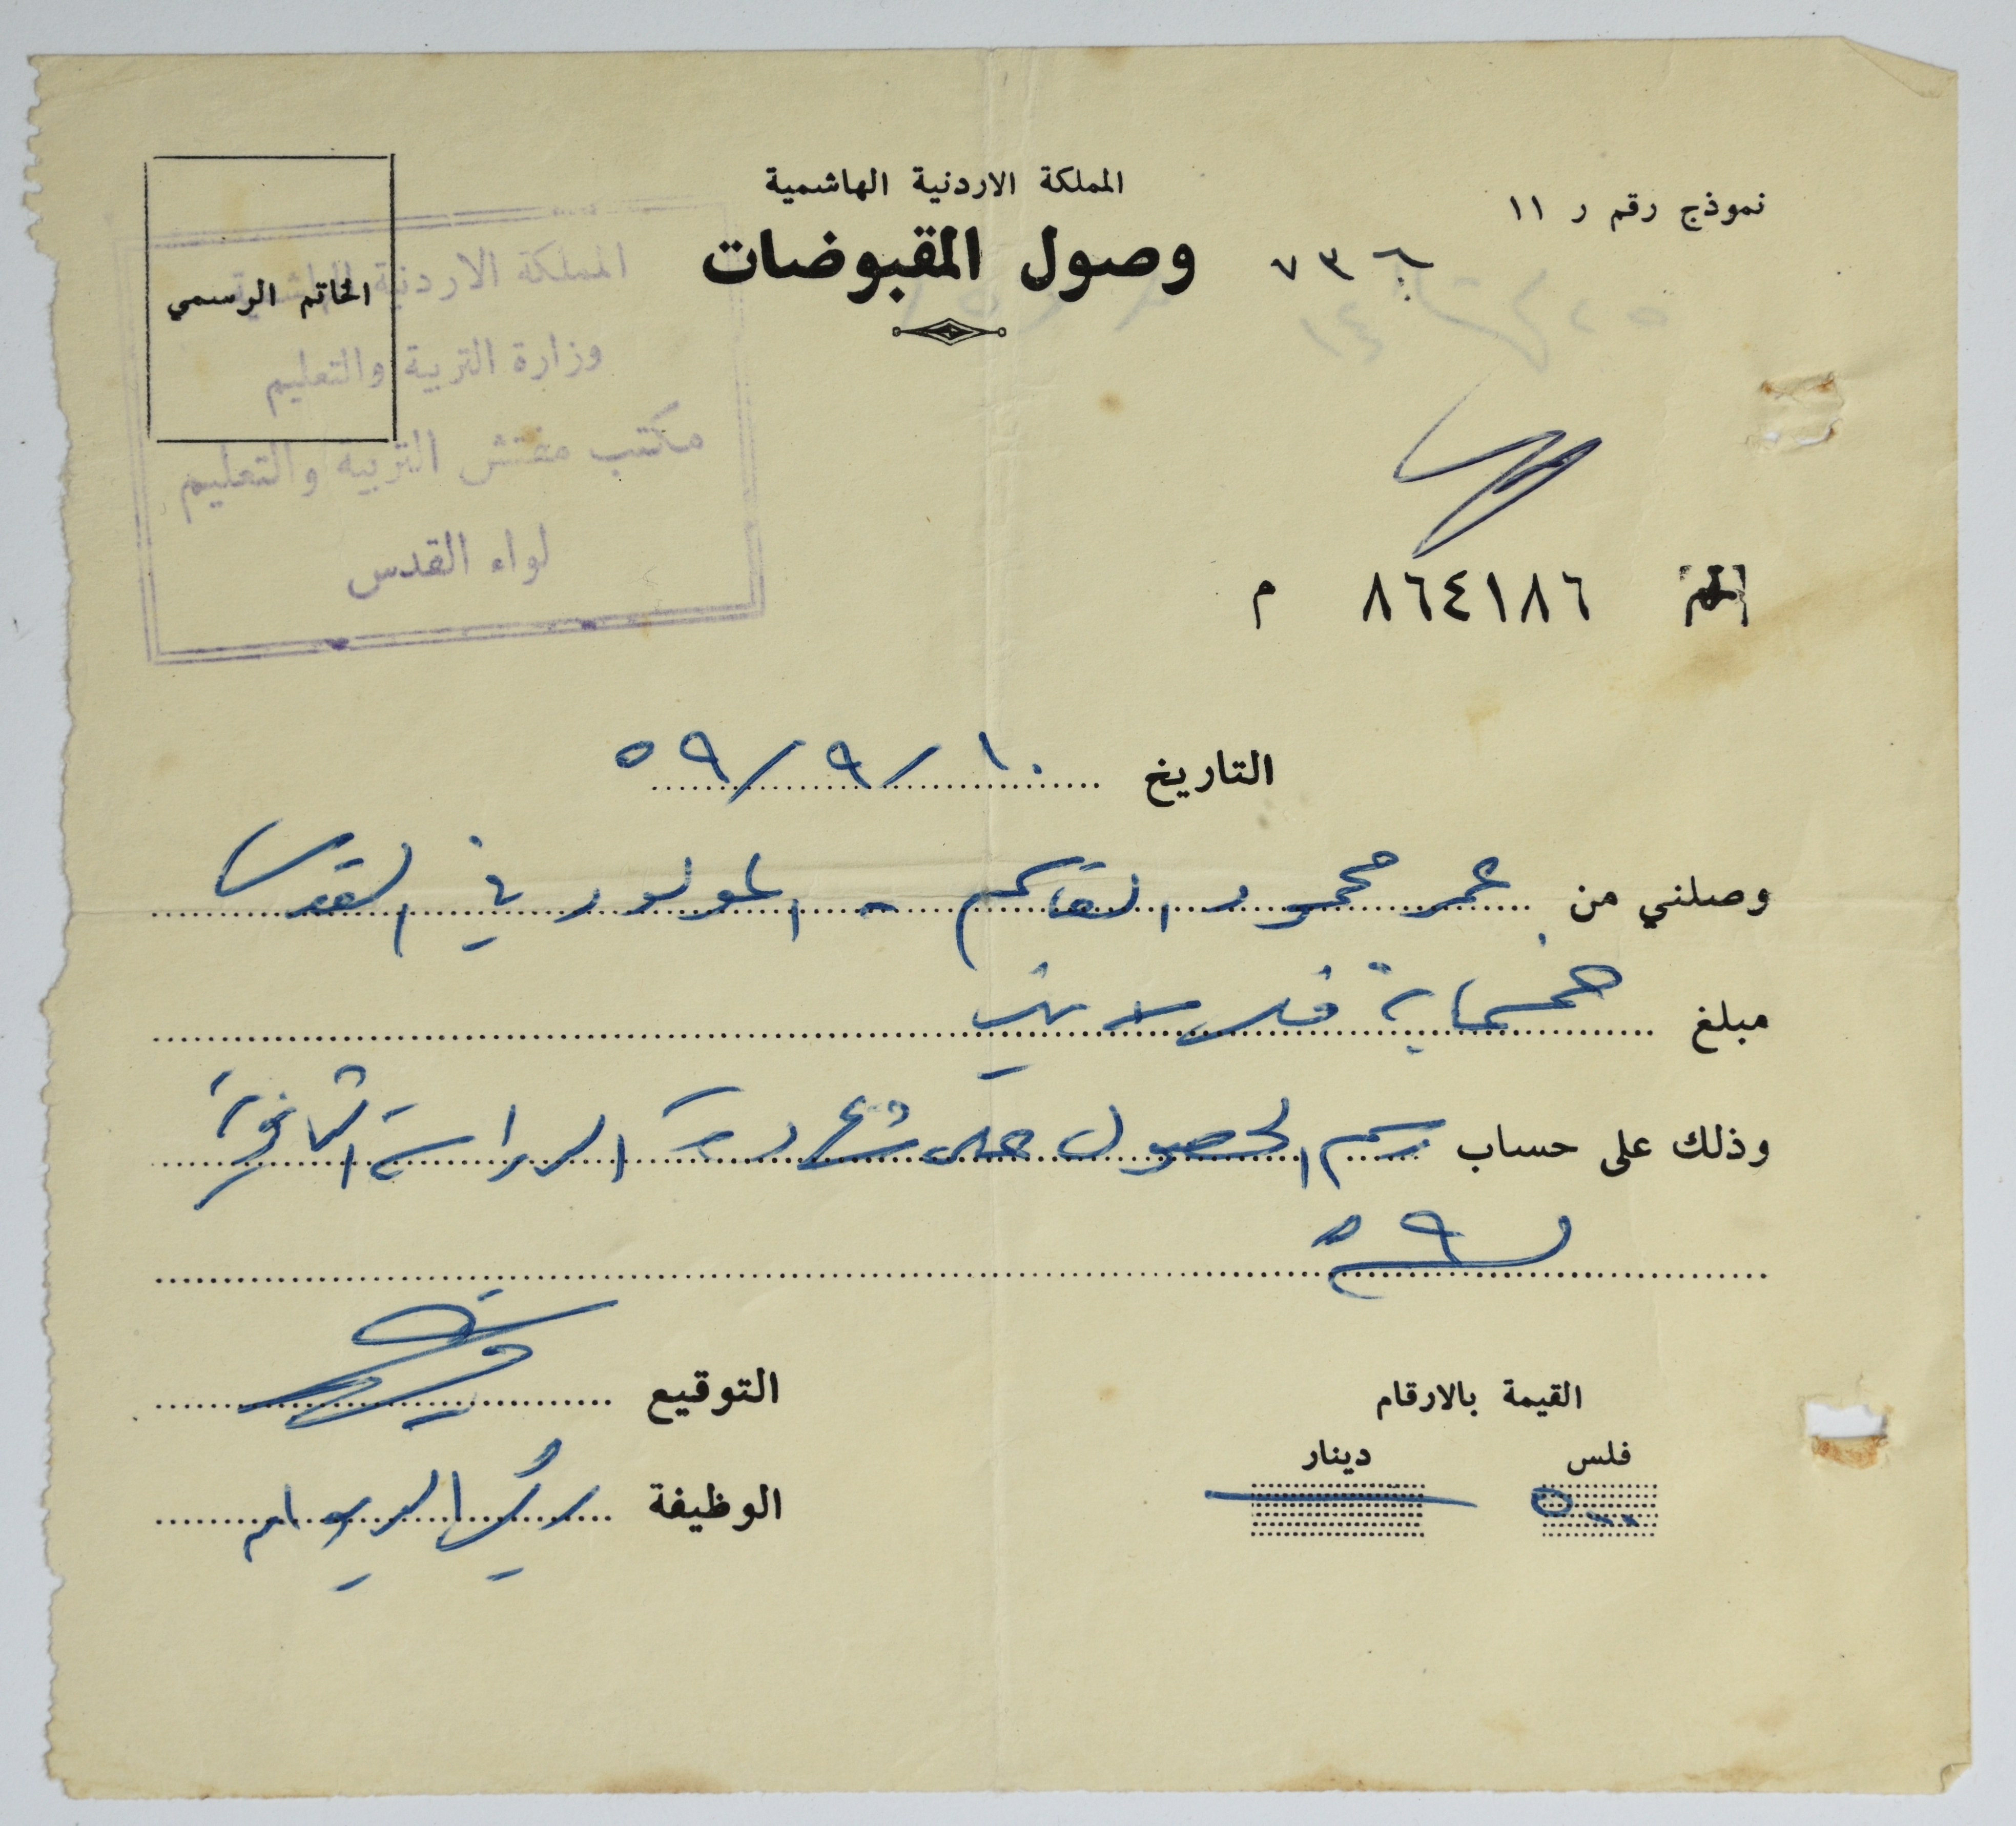 نموذج رقم ر ١١
المملكة الاردنية الهاشمية
وصول المقبوضات
٧٣٦
الخاتم الرسمي
المملكة الاردنية الهاشمية
وزارة التربية والتعليم
مكتب مفتش التربية والتعليم
لواء القدس
٨٦٤١٨٦ م
التاريخ ١٠/٩/٥٩
وصلني من عمر محمود القاسم - المولود في القدس
مبلغ خمسماية فلس
وذلك على حساب رسم الحصول على شهادة الدراسة الثانوية
لسنة ٥٩
القيمة بالارقام
فلس دينار
٥٠٠ —
التوقيع
الوظيفة رئيس الديوان